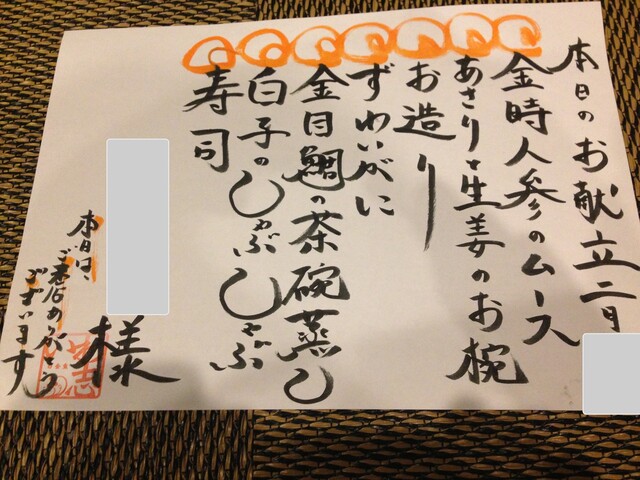 本日のお献立二月
金時人参のムース
あさりと生姜のお椀
お造り
ずわいがに
金目鯛の茶碗蒸し
白子のしゃぶしゃぶ
寿司
様
本日は
ご来店ありがとう
ございます